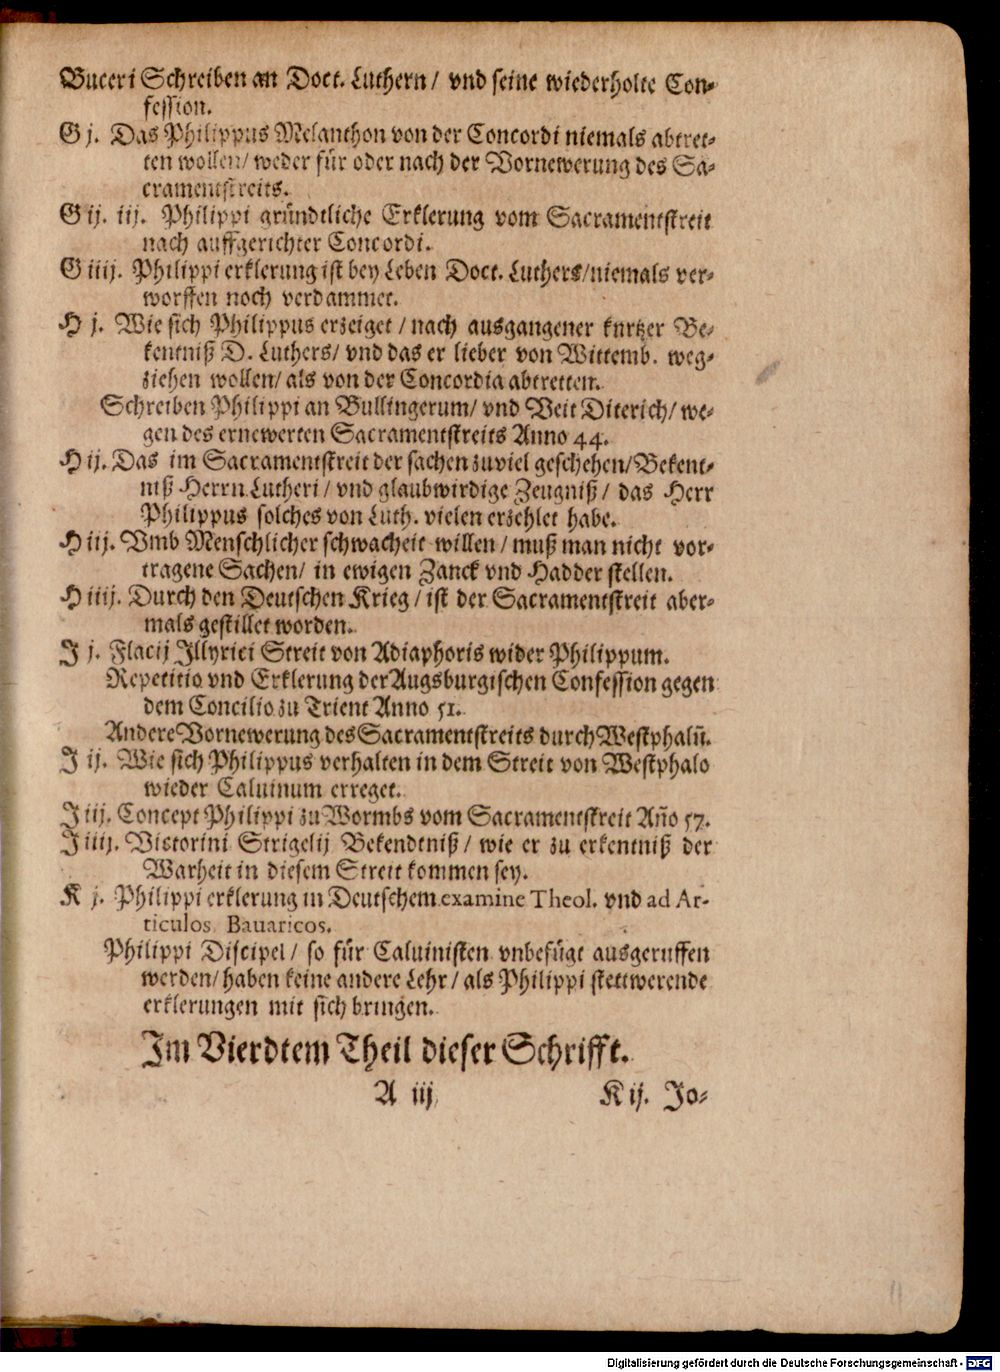 Buceri Schreiben an Doct. Luthern/ vnd seine wiederholte Con-
fession.
G j. Das Philippus Melanthon von der Concordi niemals abtret-
ten wollen/ weder für oder nach der Vornewerung des Sa-
cramentstreits.
G ij. iij. Philippi gründtliche Erklerung vom Sacramentstreit
nach auffgerichter Concordi.
G iiij. Philippi erklerung ist bey Leben Doct. Luthers/ niemals ver-
worffen noch verdammet.
H j. Wie sich Philippus erzeiget/ nach ausgangener kurtzer Be-
kentniß D. Luthers/ vnd das er lieber von Wittemb. weg-
ziehen wollen/ als von der Concordia abtretten.
Schreiben Philippi an Bullingerum/ vnd Veit Diterich/ we-
gen des ernewerten Sacramentstreits Anno 44.
H ij. Das im Sacramentstreit der sachen zuviel geschehen/ Bekent-
niß Herrn Lutheri/ vnd glaubwirdige Zeugniß/ das Herr
Philippus solches von Luth. vielen erzehlet habe.
H iij. Vmb Menschlicher schwacheit willen/ muß man nicht vor-
tragene Sachen/ in ewigen Zanck vnd Hadder stellen.
H iiij. Durch den Deutschen Krieg/ ist der Sacramentstreit aber-
mals gestillet worden.
J j. Flacij Jllyrici Streit von Adiaphoris wider Philippum.
Repetitio vnd Erklerung der Augsburgischen Confession gegen
dem Concilio zu Trient Anno 51.
Andere Vornewerung des Sacramentstreits durch Westphalū.
J ij. Wie sich Philippus verhalten in dem Streit von Westphalo
wieder Caluinum erreget.
J iij. Concept Philippi zu Wormbs vom Sacramentstreit Año 57.
J iiij. Victorini Strigelij Bekendtniß/ wie er zu erkentniß der
Warheit in diesem Streit kommen sey.
K j. Philippi erklerung in Deutschem examine Theol. vnd ad Ar-
ticulos Bauaricos.
Philippi Discipel/ so für Caluinisten vnbefügt ausgeruffen
werden/ haben keine andere Lehr/ als Philippi stettwerende
erklerungen mit sich bringen.
Im Vierdtem Theil dieser Schrifft.
A iij
K ij. Jo-
Digitalisierung gefördert durch die Deutsche Forschungsgemeinschaft - DFG